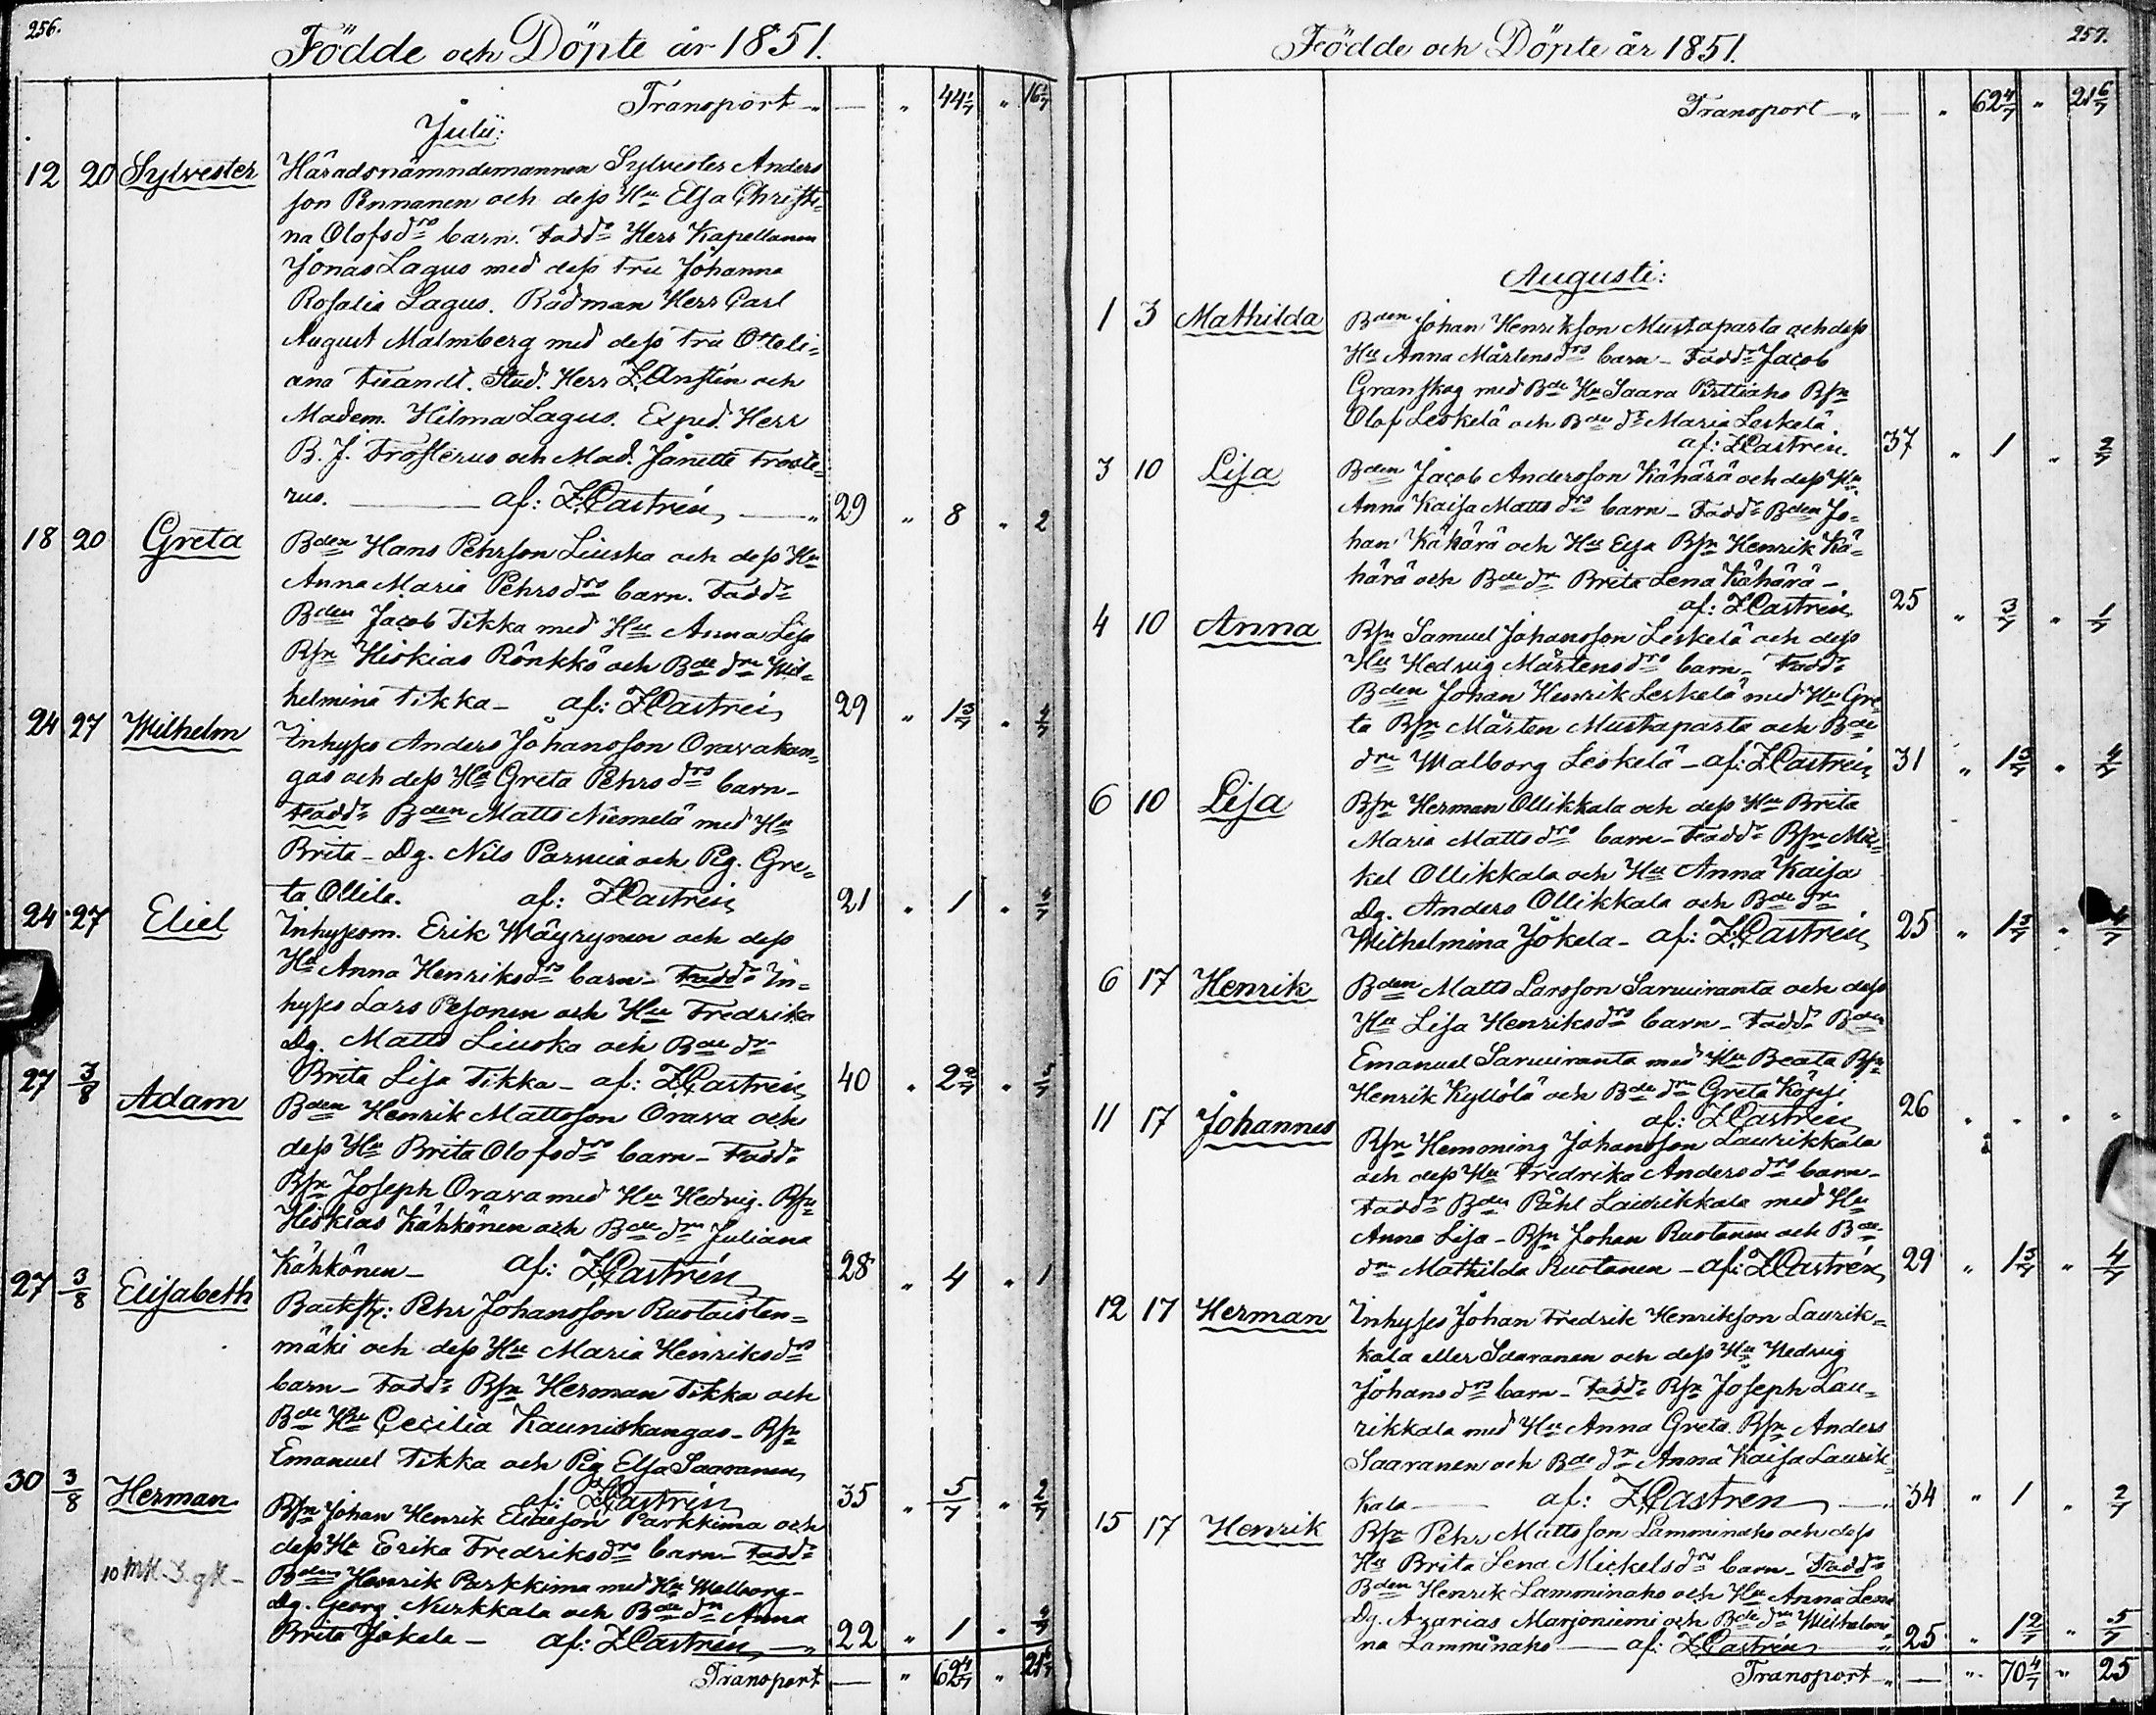 256.
Födde och Döpte år 1851.
Transport „ — „ 44 1/7 „ 16 1/7
Julii:
12 20 Sylvester Häradsnämndemannen Sylvester Anders
son Pennanen och dess Hu Elsa Christi=
na Olofsdrs barn. Faddr Herr Kapellanen
Jonas Lagus med dess Fru Johanna
Rosalia Lagus. Rådman Herr Carl
August Malmberg med dess Fru Otteli=
ana Stud. Herr och
Madem. Hilma Lagus. Exped. Herr
B. J. Frosterus och Mad. Janette Froste=
rus. — af: Z.Castrén — „ 29 „ 8 „ 2
18 20 Greta Bden Hans Pehrson Liuska och dess Hu
Anna Maria Pehrsdrs barn. Faddr
Bden Jacob Tikka med Hu Anna Lisa
Bsn Hiskias Rönkkö och Bde dr Wil=
helmina Tikka — af: Z.Castrén 29 „ 1 3/7 „
24 27 Wilhelm Inhyses Anders Johansson Oravakan=
gas och dess Hu Greta Pehrsdrs barn —
Faddr Bden Matts Niemelä med Hu
Brita — Dg. Nils och Pig. Gre=
ta Ollila. af: Z.Castrén 21 „ 1 „
24 27 Eliel Inhysesm. Erik Mäyrynen och dess
Hu Anna Henriksdrs barn — Faddr In=
hyses Lars Pesonen och Hu Fredrika
Dg. Matts Liuska och Bde dr
Brita Lisa Tikka — af: Z.Castrén 40 „ 2 2/7 „
27 3/8 Adam Bden Henrik Mattsson Orava och
dess Hu Brita Olofsdrs barn — Faddr
Bsn Joseph Orava med Hu Hedvig. Bsn
Hiskias Kähkönen och Bde dr Juliana
Kähkönen — af: Z.Castrén 28 „ 4 „ 1
27 3/8 Elisabeth Backst: Pehr Johansson Ruotaisten=
mäki och dess Hu Maria Henriksdrs
barn — Faddr Bsn Herman Tikka och
Bde Hu Cecilia Kauniskangas — Bsn
Emanuel Tikka och Pig Elsa Saaranen,
af: Z.Castrén 35 „ 5/7 „ 2/7
30 3/8 Herman Bsn Johan Henrik Eliaeson Parkkima och
dess Hu Erika Fredriksdrs barn — Faddr
Bden Henrik Parkkima med Hu Walborg —
Dg. Georg Nurkkala och Bde dr Anna
Brita Jokela — af: Z.Castrén — „ 22 „ 1 „
Transport — „ 62 4/7 „ 21 6/7
257.
Födde och Döpte år 1851.
Transport — „ — „ 62 4/7 „ 21 6/7
Augusti:
1 3 Mathilda Bden Johan Henrikson Mustaparta och dess
Hu Anna Mårtensdrs barn — Faddr Jacob
Granskog med Bde Hu Saara Bsn
Olof Leskelä och Bde dr Maria Leskelä.
af: Z.Castrén. 37 „ 1 „ 2/7
3 10 Lisa Bden Jacob Andersson Kähärä och dess Hu
Anna Kaisa Mattsdrs barn — Faddr Bden Jo=
han Kähärä och Hu Elsa Bsn Henrik Kä=
härä och Bde dr Brita Lena Kähärä —
af: Z.Castrén 25 „ 3/7 „ 1/7
4 10 Anna Bsn Samuel Johansson Leskelä och dess
Hu Hedvig Mårtensdrs barn — Faddr
Bden Johan Henrik Leskelä med Hu Gre=
ta Bsn Mårten Mustaparta och Bde
dr Walborg Leskelä — af: Z.Castrén 31 „ 1 3/7 „ 4/7
6 10 Lisa Bsn Herman Ollikkala och dess Hu Brita
Maria Mattsdrs barn — Faddr Bsn Mic=
kel Ollikkala och Hu Anna Kaisa
Dg. Anders Ollikkala och Bde dr
Wilhelmina Jokela — af: Z.Castrén 25 „ 1 3/7 „ 4/7
6 17 Henrik Bden Matts Larsson Sarwiranta och dess
Hu Lisa Henriksdrs barn — Faddr Bden
Emanuel Sarwiranta med Hu Beata Bsn
Henrik Kyllölä och Bde dr Greta Köpsi
af: Z.Castrén 26 „ „ „ „
11 17 Johannes Bsn Hemming Johansson Laurikkala
och dess Hu Fredrika Andersdrs barn —
Faddr Bden Påhl Laurikkala med Hu
Anna Lisa — Bsn Johan Ruotanen och Bde
dr Mathilda Ruotanen — af: Z.Castrén 29 „ 1 3/7 „ 4/7
12 17 Herman Inhyses Johan Fredrik Henrikson Laurik=
kala eller Saaranen och dess Hu Hedvig
Johansdrs barn — Faddr Bsn Joseph Lau=
rikkala med Hu Anna Greta. Bsn Anders
Saaranen och Bde dr Anna Kaisa Laurik=
kala — af: Z.Castrén — „ 34 „ 1 „ 2/7
15 17 Henrik Bsn Pehr Mattsson Lamminaho och dess
Hu Brita Lena Mickelsdrs barn — Faddr
Bden Henrik Lamminaho och Hu Anna Lena
Dg. Azarias Marjoniemi och Bde dr Wilhelmi=
na Lamminaho — af: Z.Castrén „ 25 „ 1 2/7 „ 5/7
Transport — „ — „ 70 4/7 „ 25